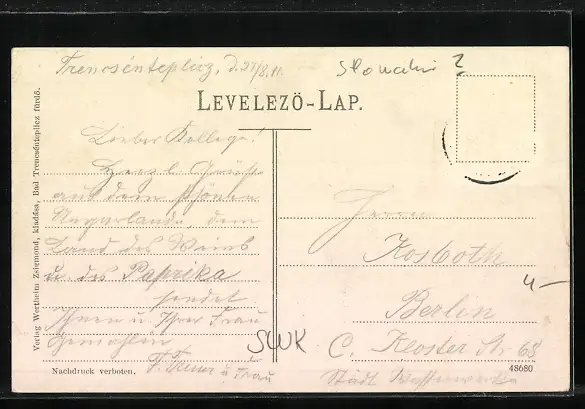 Trencsénteplicz, d. 27/8.11.
Slovakei ?
LEVELEZŐ-LAP.
Lieber Kollege!
Herzl. Grüße
aus dem schönen
Ungarlande, dem
Land des Weins
u. des Paprika
sendet
Ihnen u Ihrer Frau
Gemahlin
F. u Frau
SWK
Herrn
Kosboth
4-
Berlin
C. Kloster Str. 68
Städt.
Verlag Wertheim Zsigmond, kiadása, Bad Trencsénteplicz fürdő.
Nachdruck verboten.
48680